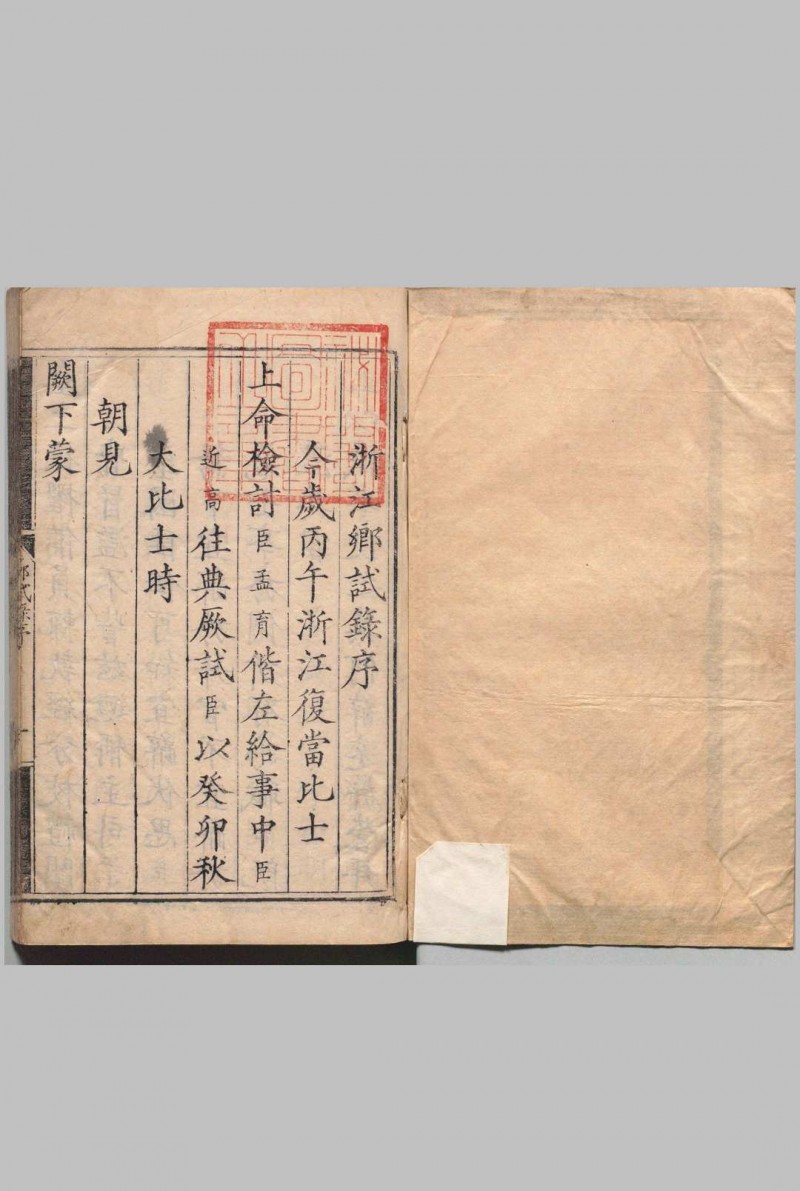 浙江鄉試錄序
今歲丙午浙江復當比士
上命檢討臣孟育偕左給事中臣
近高往典厥試臣以癸卯秋
大比士時
朝見
闕下蒙